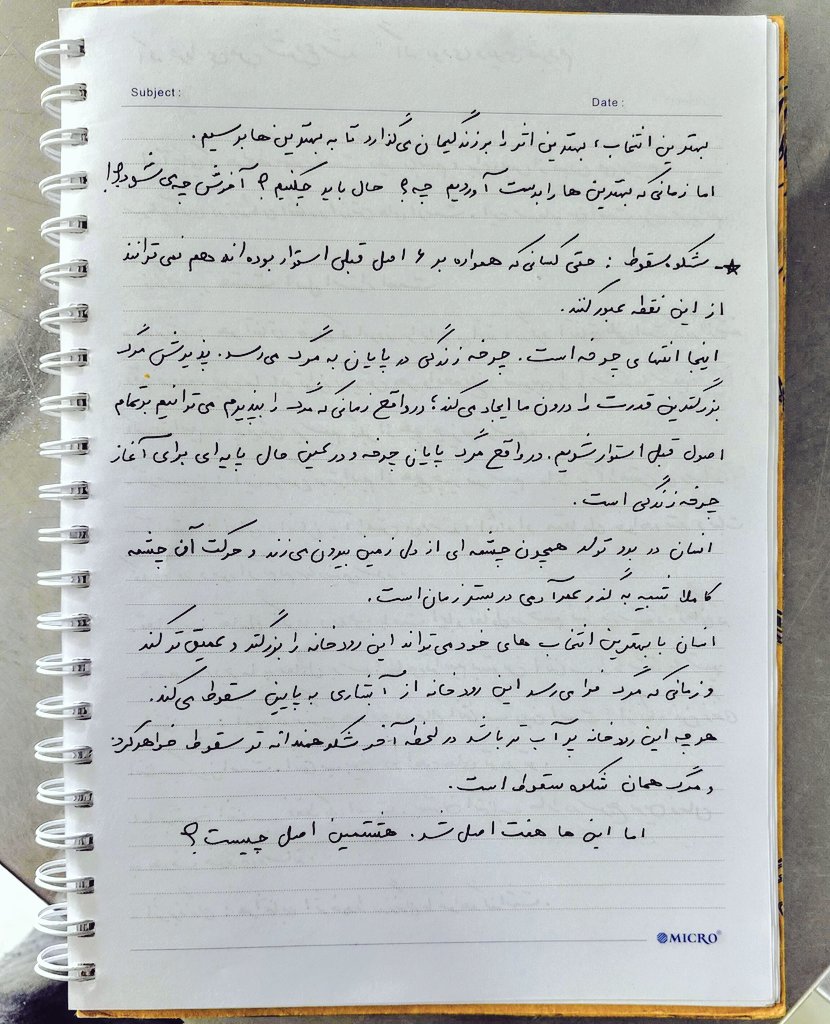 Subject:
Date:
بهترین انتخاب، بهترین اثر را بر زندگیمان می‌گذارد تا به بهترین ها برسیم.
اما زمانی که بهترین ها را بدست آوردیم چه؟ حال باید چیکنیم؟ آخرش چه می‌شود؟!
شکوه سقوط: حتی کسانی که همواره بر ۶ اصل قبلی استوار بوده اند هم نمی‌توانند
از این نقطه عبور کنند.
اینجا انتهای چرخه است. چرخه زندگی در پایان به مرگ می‌رسد. پذیرش مرگ
بزرگترین قدرت را درون ما ایجاد می‌کند؛ در واقع زمانی که مرگ را بپذیریم می‌توانیم بر تمام
اصول قبل استوار شویم. در واقع مرگ پایان چرخه و در عین حال پایه‌ای برای آغاز
چرخه زندگی است.
انسان در بدو تولد همچون چشمه ای از دل زمین بیرون می‌زند و حرکت آن چشمه
کاملا شبیه به گذر عمر آدمی در بستر زمان است.
انسان با بهترین انتخاب های خود می‌تواند این رودخانه را بزرگتر و عمیق تر کند
و زمانی که مرگ فرا می‌رسد این رودخانه از آبشاری به پایین سقوط می‌کند.
هرچه این رودخانه پر آب تر باشد در لحظه آخر شکوهمندانه تر سقوط خواهد کرد:
و مرگ همان شکوه سقوط است.
اما این ها هفت اصل شد. هشتمین اصل چیست؟
MICRO